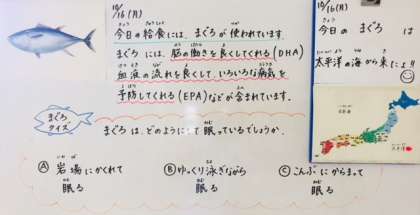 10/16(月)
今日の給食には、まぐろが使われています。
まぐろには、脳の働きを良くしてくれる(DHA)
血液の流れを良くして、いろいろな病気を
予防してくれる(EPA)などが含まれています。
まぐろクイズ
まぐろは、どのようにして眠っているでしょうか。
Ⓐ 岩場にかくれて
眠る
Ⓑ ゆっくり泳ぎながら
眠る
Ⓒ こんぶにからまって
眠る
10/16(月)
今日のまぐろは
太平洋の海から来たよ!!